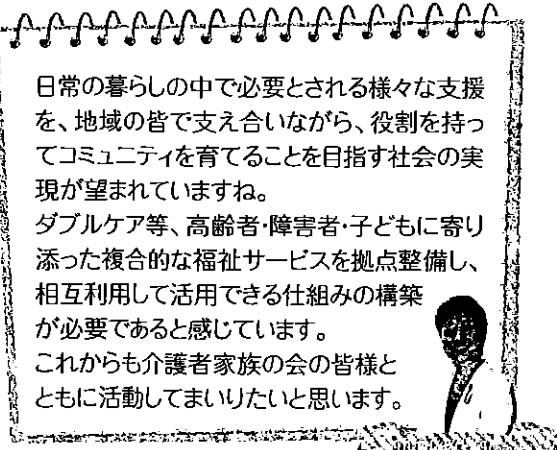 日常の暮らしの中で必要とされる様々な支援
を、地域の皆で支え合いながら、役割を持っ
てコミュニティを育てることを目指す社会の実
現が望まれていますね。
ダブルケア等、高齢者・障害者・子どもに寄り
添った複合的な福祉サービスを拠点整備し、
相互利用して活用できる仕組みの構築
が必要であると感じています。
これからも介護者家族の会の皆様と
ともに活動してまいりたいと思います。